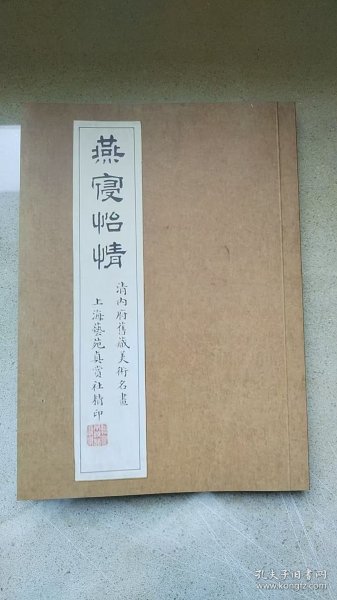 燕寑怡情
清內府舊藏美術名畫
上海藝苑真賞社精印
孔夫子旧书网